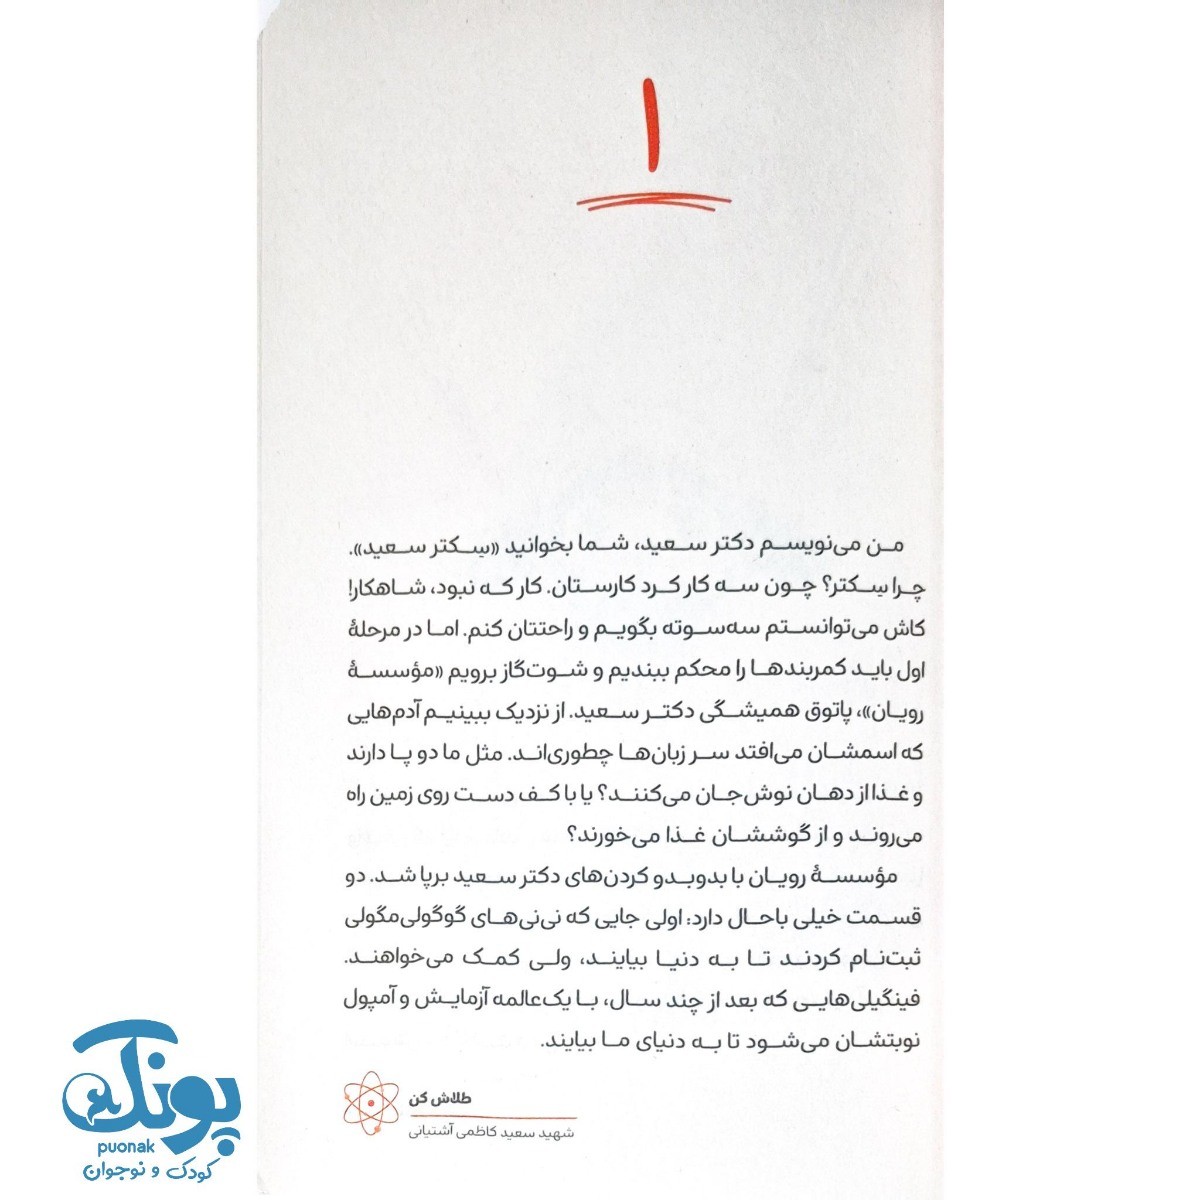 ۱
من می‌نویسم دکتر سعید، شما بخوانید «سِکتر سعید».
چرا سِکتر؟ چون سه کار کرد کارستان. کار که نبود، شاهکار!
کاش می‌توانستم سه‌سوته بگویم و راحتتان کنم. اما در مرحلهٔ
اول باید کمربندها را محکم ببندیم و شوت‌گاز برویم «مؤسسهٔ
رویان»، پاتوق همیشگی دکتر سعید. از نزدیک ببینیم آدم‌هایی
که اسمشان می‌افتد سر زبان‌ها چطوری‌اند. مثل ما دو پا دارند
و غذا از دهان نوش‌جان می‌کنند؟ یا با کف دست روی زمین راه
می‌روند و از گوششان غذا می‌خورند؟
مؤسسهٔ رویان با بدوبدو کردن‌های دکتر سعید برپا شد. دو
قسمت خیلی باحال دارد: اولی جایی که نی‌نی‌های گوگولی‌مگولی
ثبت‌نام کردند تا به دنیا بیایند، ولی کمک می‌خواهند.
فینگیلی‌هایی که بعد از چند سال، با یک‌عالمه آزمایش و آمپول
نوبتشان می‌شود تا به دنیای ما بیایند.
طلاش کن
شهید سعید کاظمی آشتیانی
پونک
puonak
کودک و نوجوان